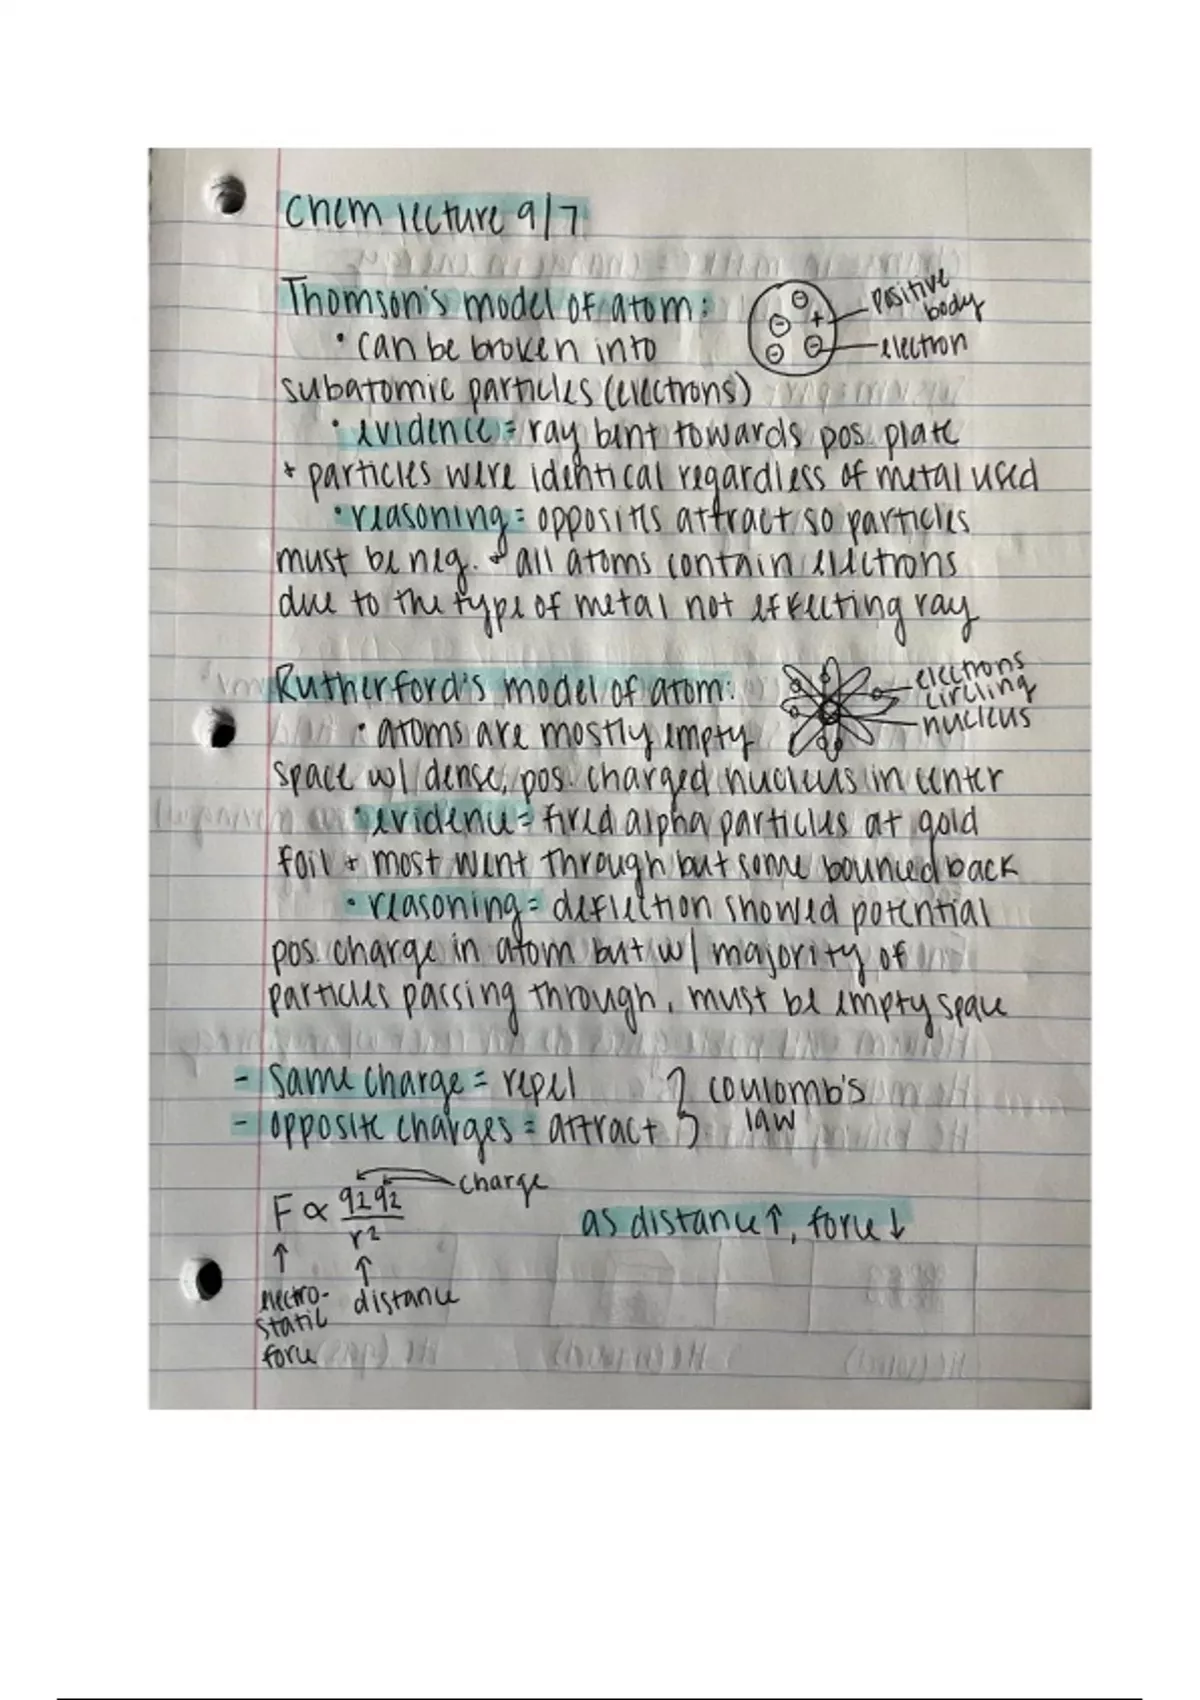 Chem lecture 9/7
Thomson's model of atom:
positive
body
electron
• can be broken into
subatomic particles (electrons)
• evidence = ray bent towards pos. plate
+ particles were identical regardless of metal used
• reasoning = opposites attract so particles
must be neg. + all atoms contain electrons
due to the type of metal not effecting ray
Rutherford's model of atom:
electrons
circling
nucleus
• atoms are mostly empty
space w/ dense, pos. charged nucleus in center
• evidence = fired alpha particles at gold
foil + most went through but some bounced back
• reasoning = deflection showed potential
pos. charge in atom but w/ majority of
particles passing through, must be empty space
- same charge = repel
- opposite charges = attract
} coulomb's
law
F ∝ q1q2
r²
charge
as distance ↑, force ↓
electro-
static
force
distance